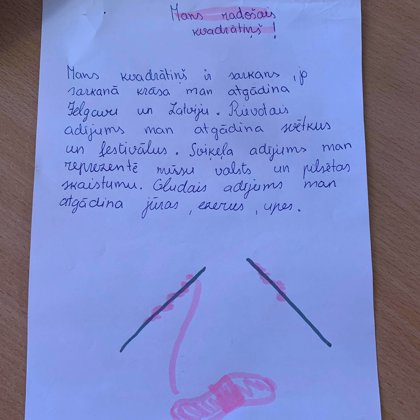 Mans radošais
kvadrātiņš!
Mans kvadrātiņš ir sarkans, jo
sarkanā krāsa man atgādina
Jelgavu un Latviju. Rievotais
adījums man atgādina svētkus
un festivālus. Sviķeļa adījums man
reprezentē mūsu valsts un pilsētas
skaistumu. Gludais adījums man
atgādina jūras, ezerus, upes.